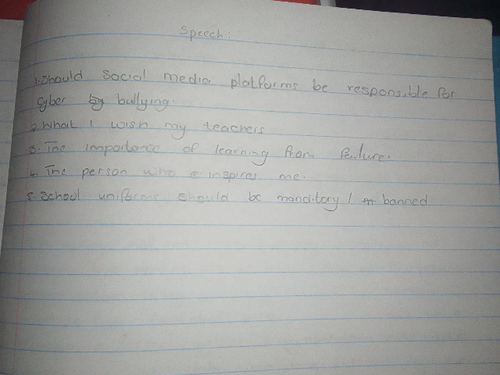 Speech:
1. Should social media platforms be responsible for
cyber bullying.
2. What I wish my teachers
3. The importance of learning from failure.
4. The person who inspires me.
5. School uniforms should be manditory / banned